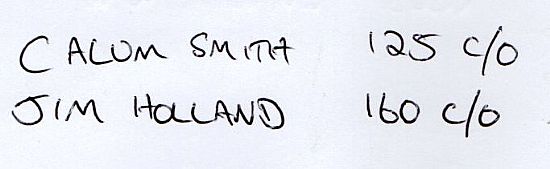 CALUM SMITH 125 c/o
JIM HOLLAND 160 c/o